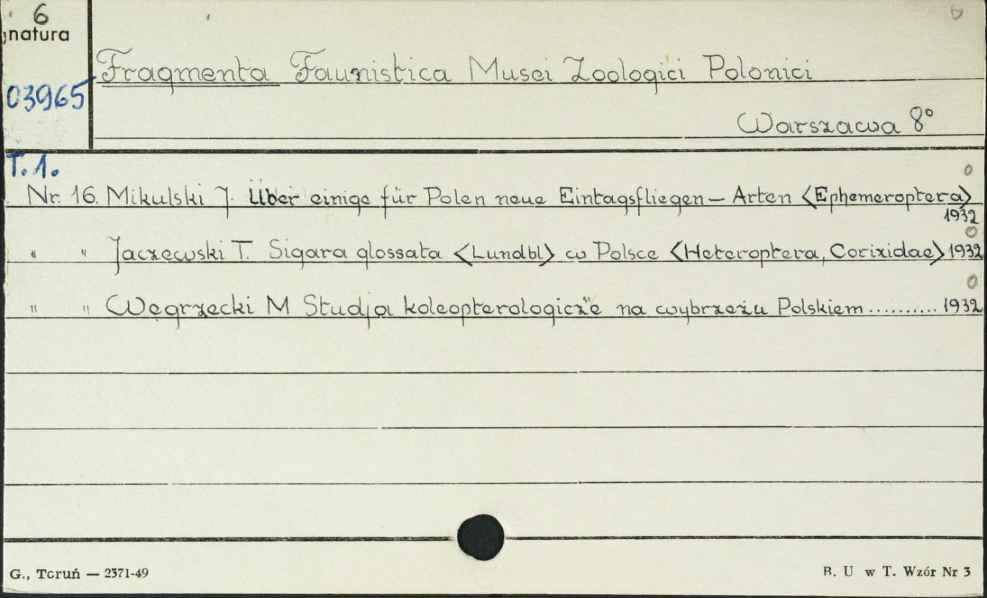 6
natura
03965
Fragmenta Faunistica Musei Zoologici Polonici
Warszawa 8°
T. 1.
Nr. 16. Mikulski J. Über einige für Polen neue Eintagsfliegen – Arten <Ephemeroptera>
1932
" " Jaczewski T. Sigara glossata <Lundbl> w Polsce <Heteroptera, Corixidae> 1932
" " Węgrzecki M Studja koleopterologiczne na wybrzeżu Polskiem .......... 1932
G., Toruń — 2371-49
B. U w T. Wzór Nr 3